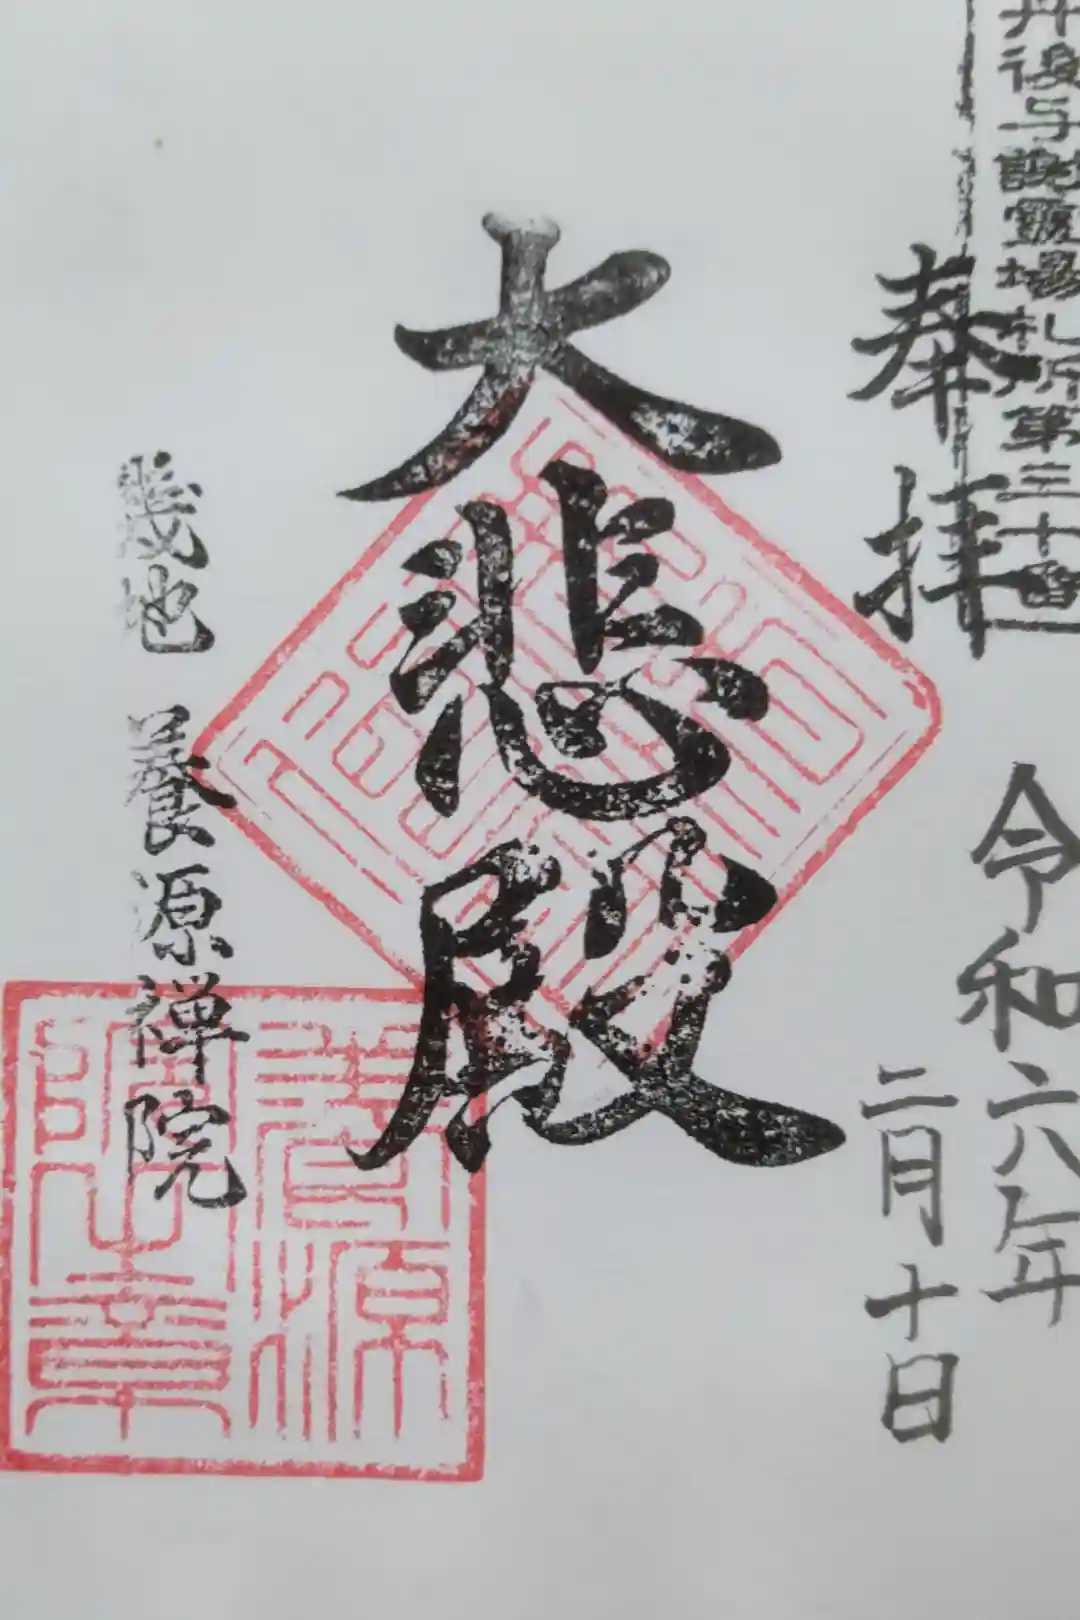 丹後与謝霊場札所第三十番
奉拝
令和六年
二月十日
大悲殿
幾地 養源禅院
養源
院主章